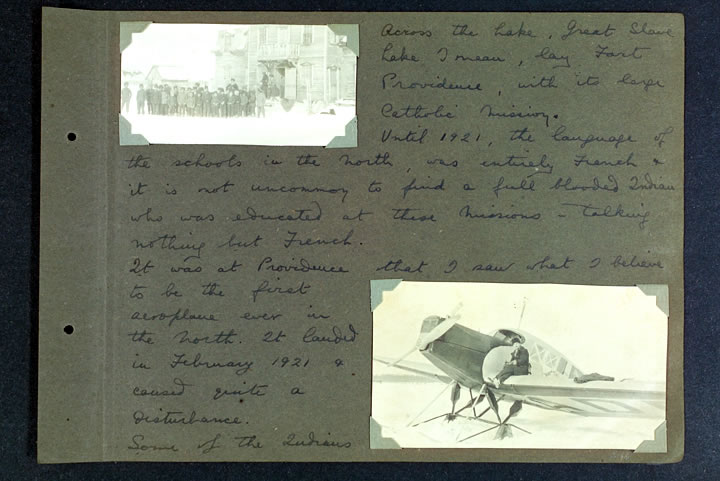 Across the Lake, Great Slave
Lake I mean, lay Fort
Providence, with its large
Catholic Mission.
Until 1921, the language of
the schools in the North, was entirely French &
it is not uncommon to find a full blooded Indian
who was educated at these Missions - talking
nothing but French.
It was at Providence that I saw what I believe
to be the first
aeroplane ever in
the North. It landed
in February 1921 &
caused quite a
disturbance.
Some of the Indians